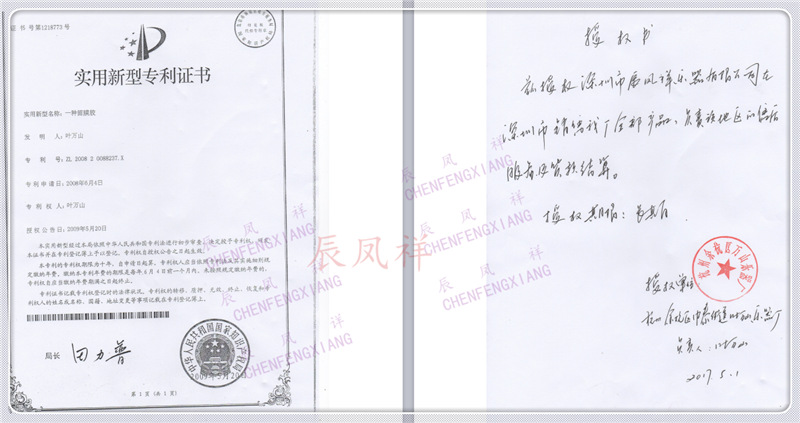 证 书 号第1218773号
实用新型专利证书
实用新型名称：一种笛膜胶
发 明 人：叶万山
专 利 号：ZL 2008 2 0088237.X
专利申请日：2008年6月4日
专 利 权 人：叶万山
授权公告日：2009年5月20日
本实用新型经过本局依照中华人民共和国专利法进行初步审查，决定授予专利权，颁发
本证书并在专利登记簿上予以登记。专利权自授权公告之日起生效。
本专利的专利权期限为十年，自申请日起算。专利权人应当依照专利法及其实施细则规
定缴纳年费。缴纳本专利年费的期限是每年6月4日前一个月内。未按照规定缴纳年费的，
专利权自应当缴纳年费期满之日起终止。
专利证书记载专利权登记时的法律状况。专利权的转移、质押、无效、终止、恢复和专
利权人的姓名或名称、国籍、地址变更等事项记载在专利登记簿上。
局长 田力普
中华人民共和国国家知识产权局
2009年5月20日
第 1 页（共 1 页）
授权书
兹授权深圳市辰凤祥乐器有限公司在
深圳市销售我厂全部产品，负责该地区的售后
服务及货款结算。
授权期限：
杭州余杭区万山乐器厂
授权单位
杭州余杭区中泰街道
负责人：叶万山
2017.5.1
辰凤祥
辰 凤 祥
CHENFENGXIANG
辰 凤 祥
CHENFENGXIANG
辰 凤 祥
CHENFENGXIANG
辰 凤 祥
CHENFENGXIANG